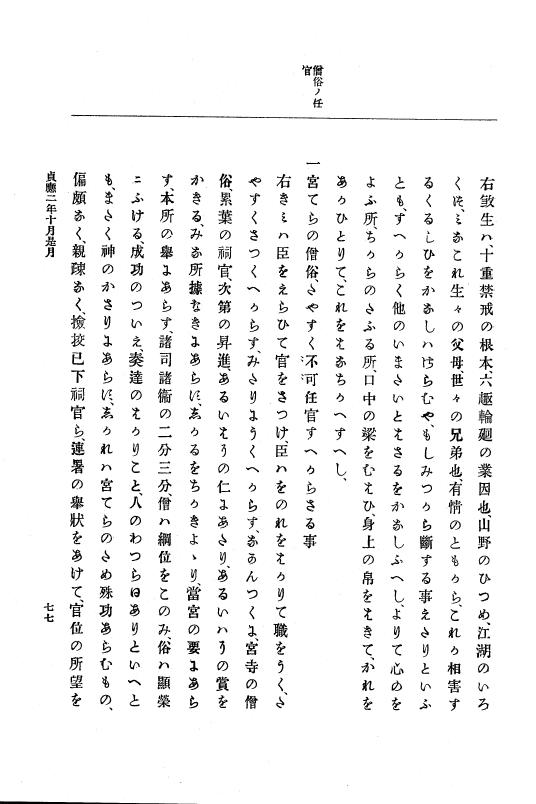 僧俗ノ任
官
右殺生ハ、十重禁戒の根本、六趣輪廻の業因也、山野のひつめ、江湖のいろ
くに、みなこれ生々の父母、世々の兄弟也、有情のともから、これか相害す
るくるしひをかなしハさらむや、もしみつから斷する事えさりといふ
とも、すへからく他のいまさいとはさるをかなしふへし、よりて心のを
よふ所、ちからのたふる所、口中の粱をむはひ、身上の帛をはきて、かれを
あかひとりて、これをはなちかへすへし、
一宮てらの僧俗、たやすく不可任官すへからさる事
右きみハ臣をえらひて官をさつけ、臣ハをのれをはかりて職をうく、た
やすくさつくへからす、みたりにうくへからす、なかんつくに、宮寺の僧
俗、累葉の祠官、次第の昇進、あるいはその仁にあたり、あるいハその賞を
かきる、みな所據なきにあらす、しかるをちかきより、當宮の要にあら
す、本所の擧にあらす、諸司諸衞の二分三分、僧ハ綱位をこのみ、俗ハ顯榮
ニふける、成功のついえ、奏達のはかりこと、人のわつらひありといへと
も、まさく神のかさりにあらす、しかれハ宮てらのため殊功あらむもの、
偏頗なく、親疎なく、撿挍已下祠官ら、連署の擧狀をあけて、官位の所望を
貞應二年十月是月
七七